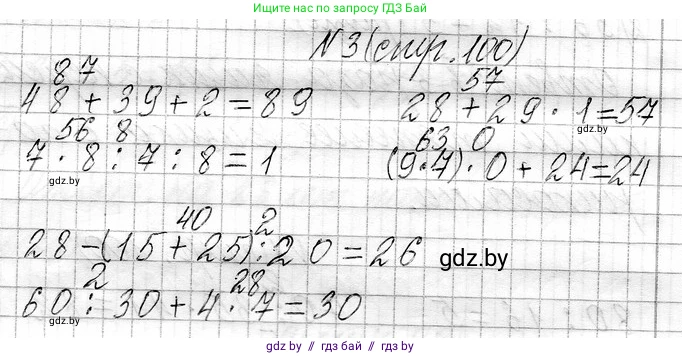 Ищите нас по запросу ГДЗ Бай
N 3 (стр. 100)
87
48 + 39 + 2 = 89
57
28 + 29 · 1 = 57
gdz.by
56 8
7 · 8 : 7 : 8 = 1
gdz.by
63 0
(9·7) · 0 + 24 = 24
40 2
28 - (15 + 25) : 20 = 26
gdz.by
2 28
60 : 30 + 4 · 7 = 30
gdz.by
gdz.by // gdz.by // gdz.by